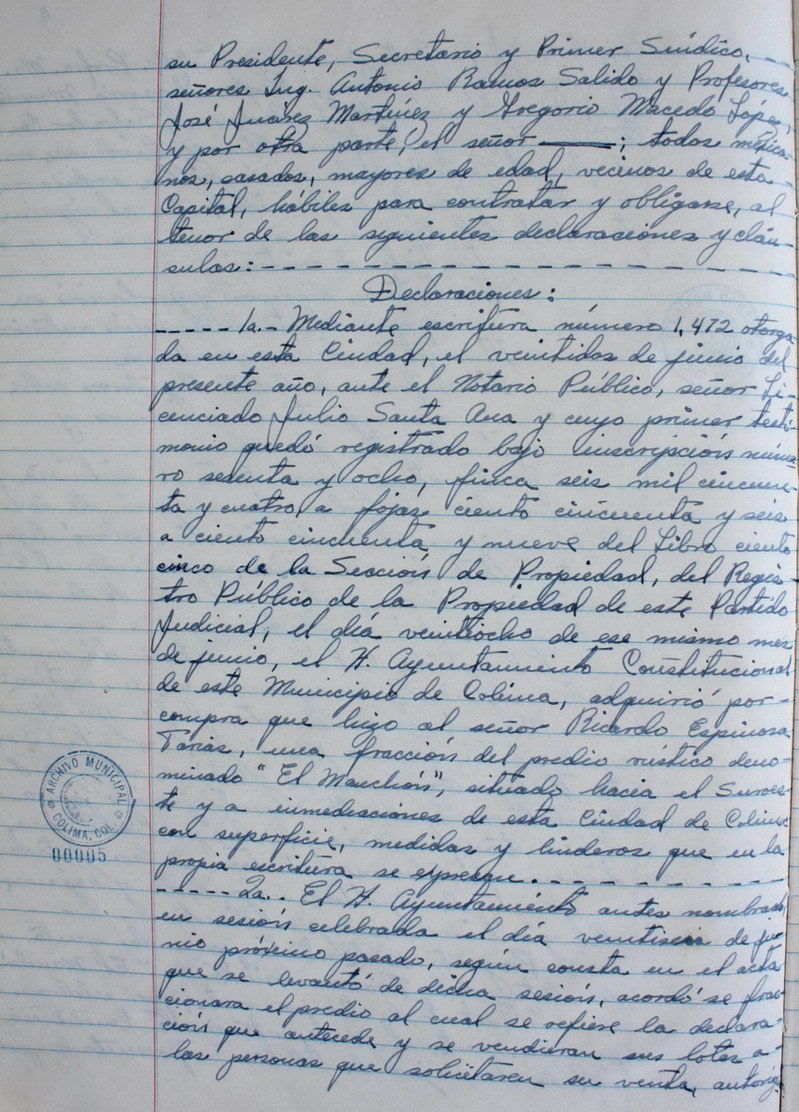 su Presidente, Secretario y Primer Síndico,
señores Ing. Antonio Ramos Salido y Profesores
José Juárez Martínez y Gregorio Macedo López,
y por otra parte, el señor ———; todos mexica-
nos, casados, mayores de edad, vecinos de esta
Capital, hábiles para contratar y obligarse, al
tenor de las siguientes declaraciones y cláu-
sulas:- - - - - - - - - - - - - - - - - - -
Declaraciones:
- - - - - 1a.- Mediante escritura número 1,472 otorga-
da en esta Ciudad, el veintidos de junio del
presente año, ante el Notario Público, señor Li-
cenciado Julio Santa Ana y cuyo primer testi-
monio quedó registrado bajo inscripción núme-
ro sesenta y ocho, finca seis mil cincuen-
ta y cuatro, a fojas ciento cincuenta y seis
a ciento cincuenta y nueve del Libro ciento
cinco de la Sección de Propiedad, del Regis-
tro Público de la Propiedad de este Partido
Judicial, el día veintiocho de ese mismo mes
de junio, el H. Ayuntamiento Constitucional
de este Municipio de Colima, adquirió por-
compra que hizo al señor Ricardo Espinosa
Tarias, una fracción del predio rústico deno-
minado "El Manchón", situado hacia el Suroes-
te y a inmediaciones de esta Ciudad de Colima
con superficie, medidas y linderos que en la
propia escritura se expresan. - - - - - - - -
- - - - - 2a.- El H. Ayuntamiento antes nombrado
en sesión celebrada el día veintiseis de ju-
nio próximo pasado, según consta en el acta
que se levantó de dicha sesión, acordó se frac-
cionara el predio al cual se refiere la declara-
ción que antecede y se vendieran sus lotes a-
las personas que solicitaren su venta, autori-
ARCHIVO MUNICIPAL
COLIMA, COL.
00005